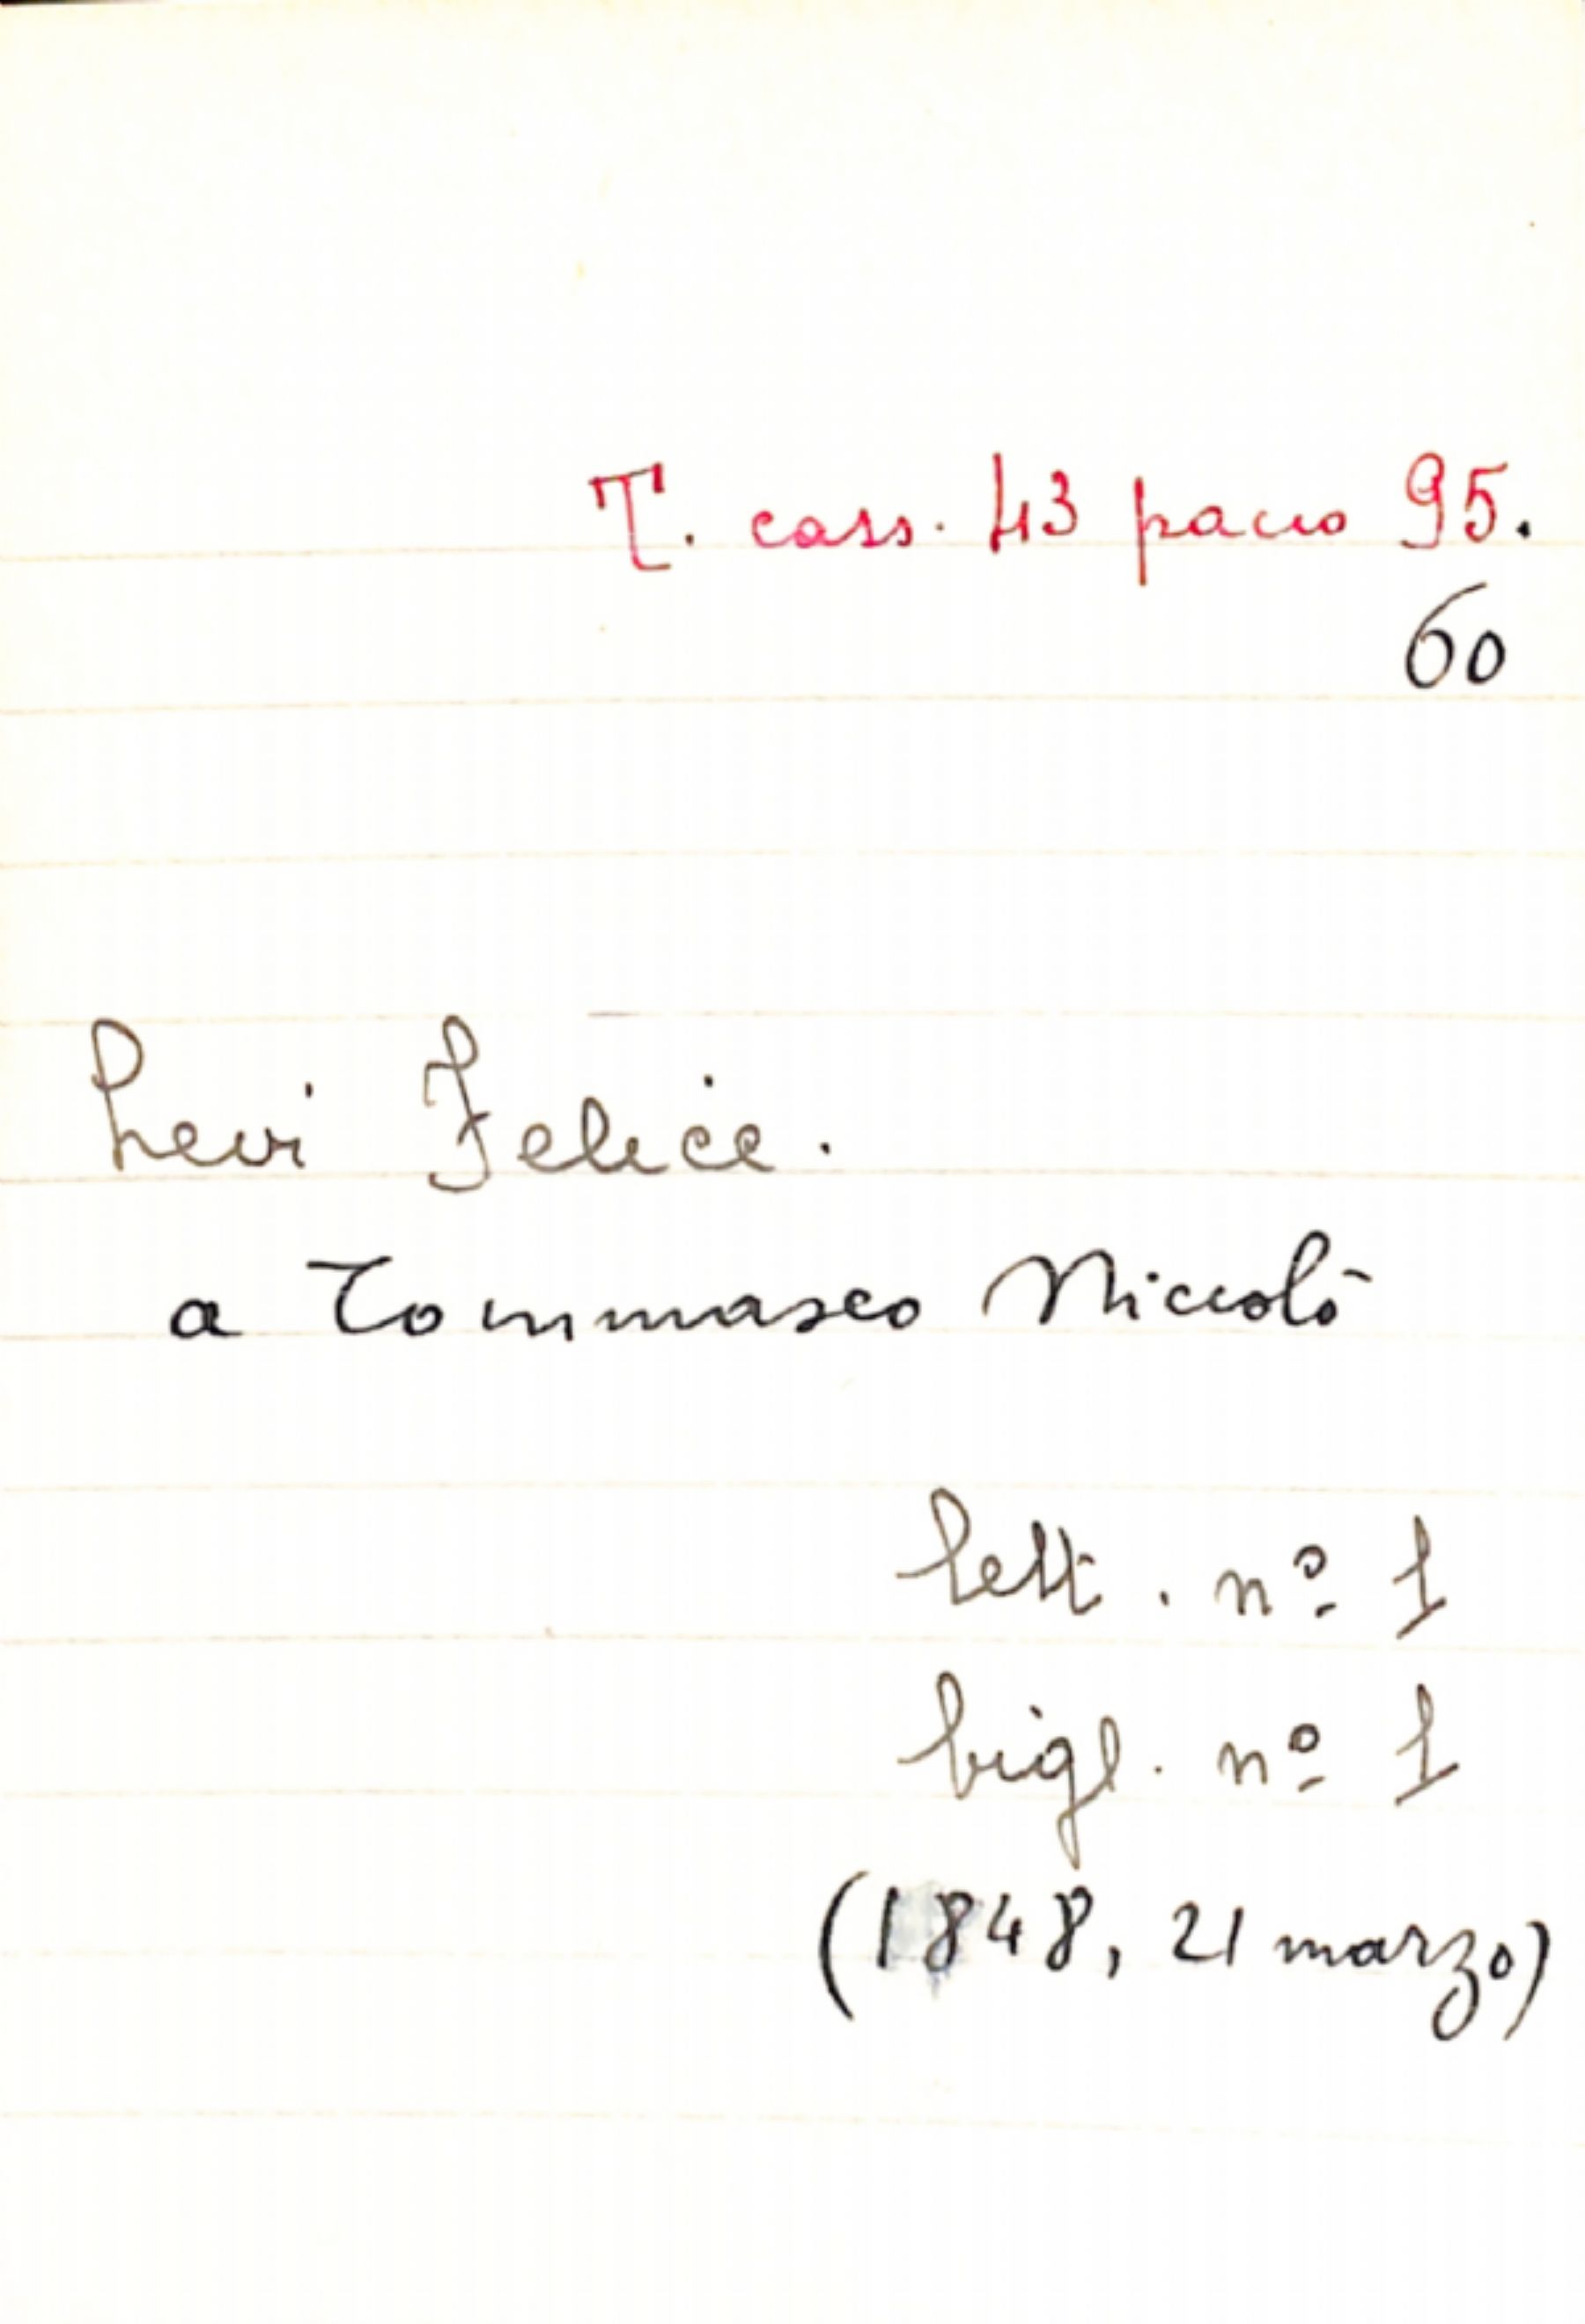 T. cass. 43 pacco 95.
60
Levi Felice.
a Tommaseo Niccolò
lett. nº 1
bigl. nº 1
(1848, 21 marzo)